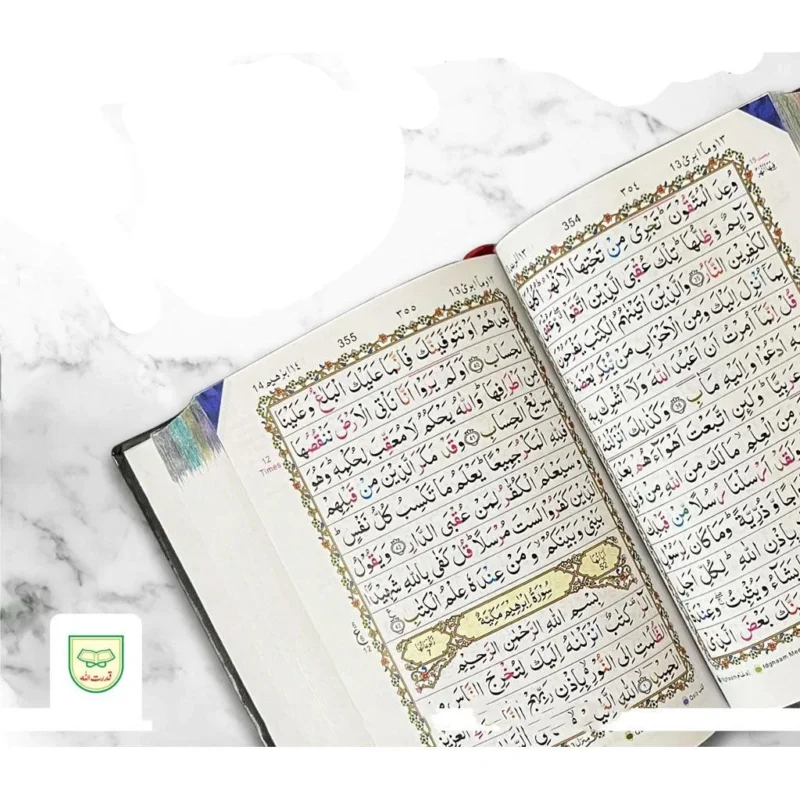 ١٣ وماابرئ 13
٣٥٤
354
وُعِدَ الْمُتَّقُوْنَ ؕ تَجْرِیْ مِنْ تَحْتِهَا الْاَنْهٰرُ ؕ
دَآىِٕمٌ وَّظِلُّهَا ؕ تِلْكَ عُقْبَی الَّذِیْنَ اتَّقَوْا
الْكٰفِرِیْنَ النَّارُ ۝۳۵ وَالَّذِیْنَ اٰتَیْنٰهُمُ الْكِتٰبَ یَفْرَحُوْنَ
بِمَاۤ اُنْزِلَ اِلَیْكَ وَمِنَ الْاَحْزَابِ مَنْ یُّنْكِرُ بَعْضَهٗ
قُلْ اِنَّمَاۤ اُمِرْتُ اَنْ اَعْبُدَ اللّٰهَ وَلَاۤ اُشْرِكَ بِهٖ
اَدْعُوْا وَاِلَیْهِ مَاٰبِ ۝۳۶ وَكَذٰلِكَ اَنْزَلْنٰهُ
عَرَبِیًّا ؕ وَلَىِٕنِ اتَّبَعْتَ اَهْوَآءَهُمْ
مِنَ الْعِلْمِ مَا لَكَ مِنَ اللّٰهِ مِنْ
وَلَقَدْ اَرْسَلْنَا رُسُلًا مِّنْ قَبْلِكَ
وَّذُرِّیَّةً ؕ وَمَا كَانَ لِرَسُوْلٍ
بِاِذْنِ اللّٰهِ ؕ لِكُلِّ اَجَلٍ
یَشَآءُ وَیُثْبِتُ ۖۚ وَعِنْدَهٗ
بَعْضَ الَّذِیْ
١٣ وماابرئ 13
٣٥٥
355
١٤ ابراهیم 14
نَعِدُهُمْ اَوْ نَتَوَفَّیَنَّكَ فَاِنَّمَا عَلَیْكَ الْبَلٰغُ وَعَلَیْنَا
الْحِسَابُ ۝۴۰ اَوَلَمْ یَرَوْا اَنَّا نَاْتِی الْاَرْضَ نَنْقُصُهَا
مِنْ اَطْرَافِهَا ؕ وَاللّٰهُ یَحْكُمُ لَا مُعَقِّبَ لِحُكْمِهٖ ؕ وَهُوَ
سَرِیْعُ الْحِسَابِ ۝۴۱ وَقَدْ مَكَرَ الَّذِیْنَ مِنْ قَبْلِهِمْ
فَلِلّٰهِ الْمَكْرُ جَمِیْعًا ؕ یَعْلَمُ مَا تَكْسِبُ كُلُّ نَفْسٍ ؕ
وَسَیَعْلَمُ الْكُفّٰرُ لِمَنْ عُقْبَی الدَّارِ ۝۴۲ وَیَقُوْلُ
الَّذِیْنَ كَفَرُوْا لَسْتَ مُرْسَلًا ؕ قُلْ كَفٰی بِاللّٰهِ شَهِیْدًۢا
بَیْنِیْ وَبَیْنَكُمْ ۙ وَمَنْ عِنْدَهٗ عِلْمُ الْكِتٰبِ ۝۴۳
اٰیاتها 52 سُوْرَةُ اِبْرٰهِیْمَ مَكِّیَّةٌ رکوعاتها 7
بِسْمِ اللّٰهِ الرَّحْمٰنِ الرَّحِیْمِ
الٓرٰ ۫ كِتٰبٌ اَنْزَلْنٰهُ اِلَیْكَ لِتُخْرِجَ النَّاسَ مِنَ
الظُّلُمٰتِ اِلَی النُّوْرِ ۙ۬ بِاِذْنِ رَبِّهِمْ
الْعَزِیْزِ الْحَمِیْدِ ۝۱ اللّٰهِ الَّذِیْ
12
Times
12
قدرت اللہ